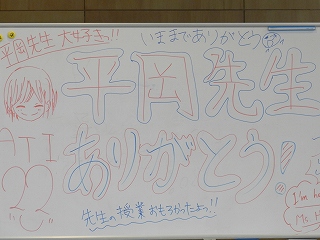 平岡先生 大好きっ!!
いままでありがとう
平岡先生
ATI
ありがとう!
先生の授業おもろかったよっ!!
I'm h
Ms. H